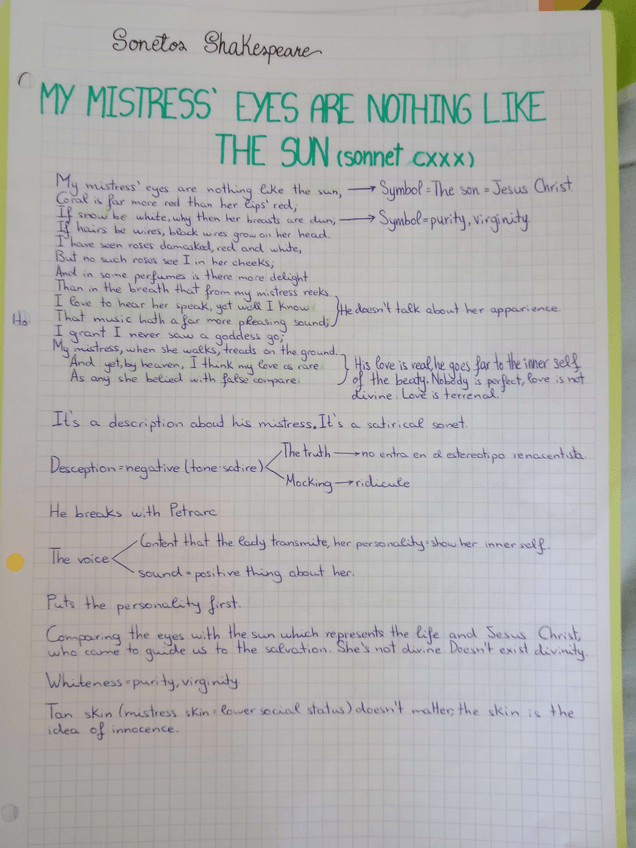 Sonetos Shakespeare
MY MISTRESS' EYES ARE NOTHING LIKE
THE SUN (sonnet CXXX)
My mistress' eyes are nothing like the sun, → Symbol = The son = Jesus Christ
Coral is far more red than her lips' red;
If snow be white, why then her breasts are dun; → Symbol = purity, virginity
If hairs be wires, black wires grow on her head.
I have seen roses damasked, red and white,
But no such roses see I in her cheeks;
And in some perfumes is there more delight
Than in the breath that from my mistress reeks.
I love to hear her speak, yet well I know
That music hath a far more pleasing sound; } He doesn't talk about her apparience.
Ho
I grant I never saw a goddess go;
My mistress, when she walks, treads on the ground.
And yet, by heaven, I think my love as rare } His love is real, he goes far to the inner self
As any she belied with false compare. of the beaty. Nobady is perfect, love is not
divine. Love is terrenal.
It's a description about his mistress. It's a satirical sonet.
The truth → no entra en el estereotipo renacentista.
Desception = negative (tone: satire)
Mocking → ridicule
He breaks with Petrarc
Content that the lady transmite, her personality = show her inner self.
The voice
sound = positive thing about her.
Puts the personality first.
Comparing the eyes with the sun which represents the life and Jesus Christ,
who came to guide us to the salvation. She's not divine. Doesn't exist divinity.
Whiteness = purity, virginity
Tan skin (mistress skin = lower social status) doesn't matter, the skin is the
idea of innocence.